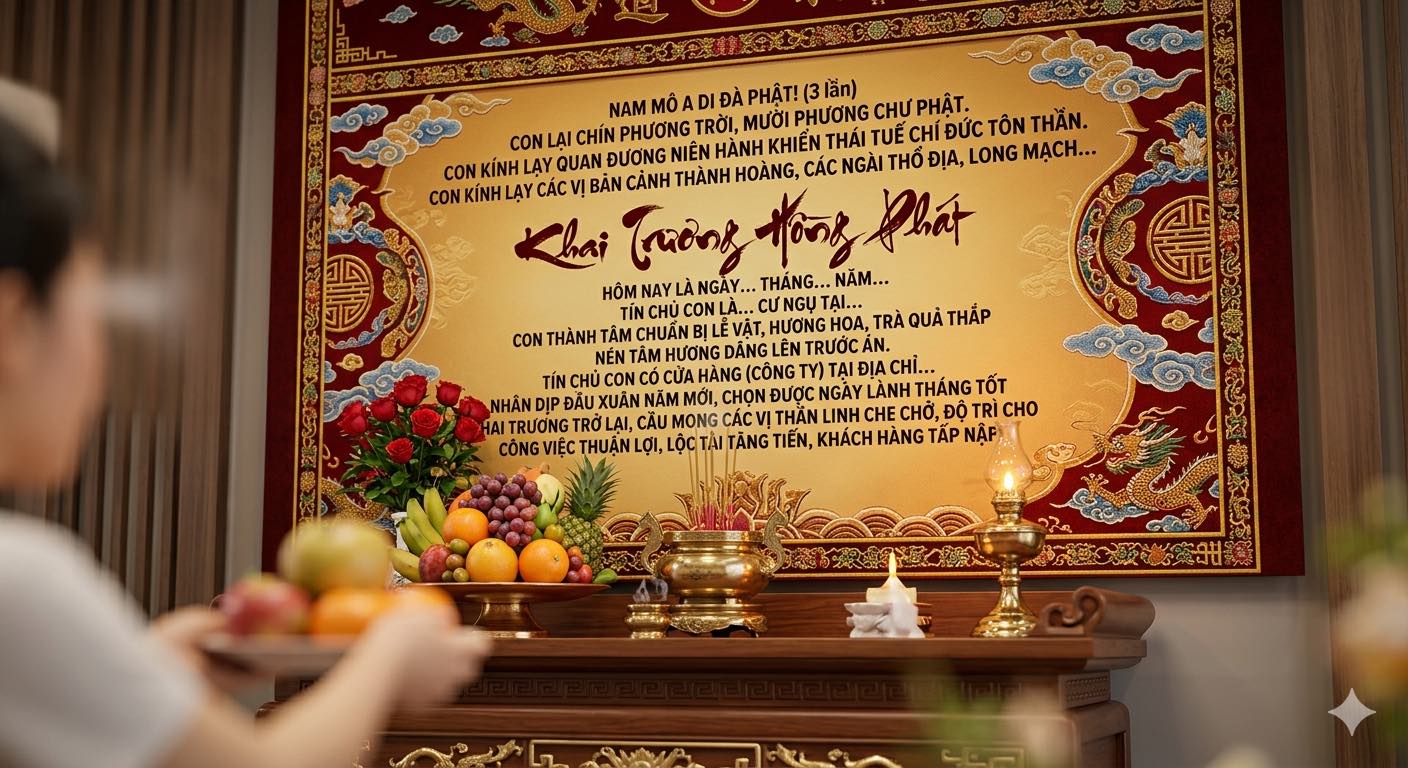 NAM MÔ A DI ĐÀ PHẬT! (3 lần)
CON LẠI CHÍN PHƯƠNG TRỜI, MƯỜI PHƯƠNG CHƯ PHẬT.
CON KÍNH LẠY QUAN ĐƯƠNG NIÊN HÀNH KHIỂN THÁI TUẾ CHÍ ĐỨC TÔN THẦN.
CON KÍNH LẠY CÁC VỊ BẢN CẢNH THÀNH HOÀNG, CÁC NGÀI THỔ ĐỊA, LONG MẠCH...
Khai Trương Hồng Phát
HÔM NAY LÀ NGÀY... THÁNG... NĂM...
TÍN CHỦ CON LÀ... CƯ NGỤ TẠI...
CON THÀNH TÂM CHUẨN BỊ LỄ VẬT, HƯƠNG HOA, TRÀ QUẢ THẮP
NÉN TÂM HƯƠNG DÂNG LÊN TRƯỚC ÁN.
TÍN CHỦ CON CÓ CỬA HÀNG (CÔNG TY) TẠI ĐỊA CHỈ...
NHÂN DỊP ĐẦU XUÂN NĂM MỚI, CHỌN ĐƯỢC NGÀY LÀNH THÁNG TỐT
HAI TRƯƠNG TRỞ LẠI, CẦU MONG CÁC VỊ THẦN LINH CHE CHỞ, ĐỘ TRÌ CHO
CÔNG VIỆC THUẬN LỢI, LỘC TÀI TĂNG TIẾN, KHÁCH HÀNG TẤP NẬP